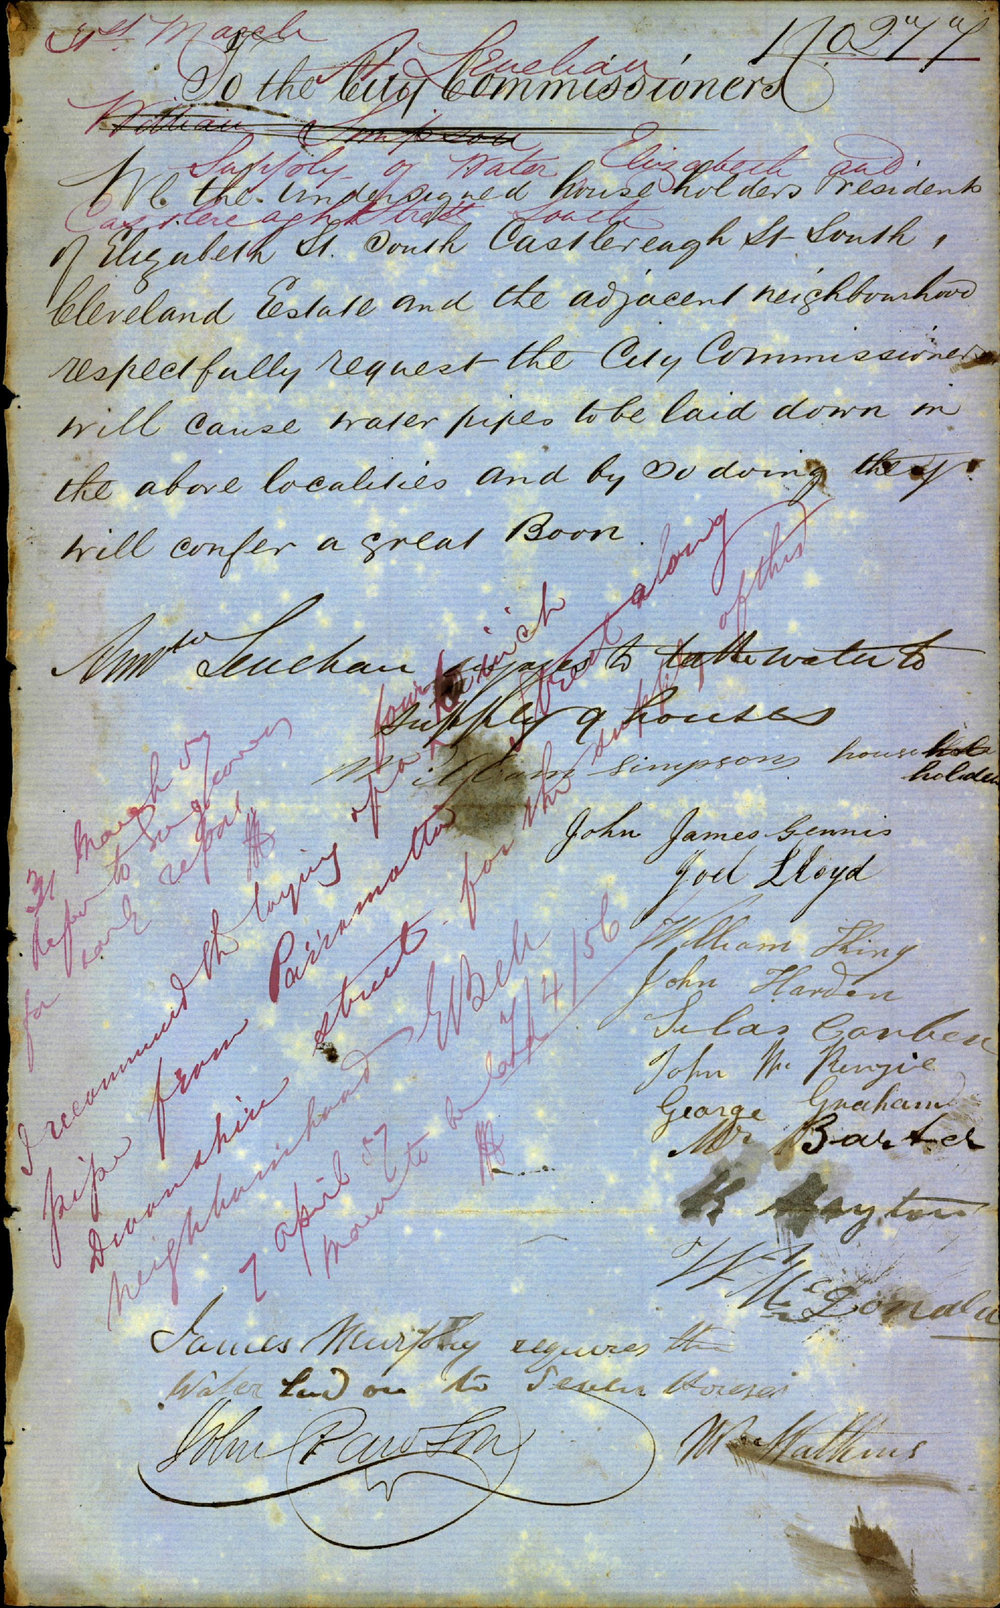 31st March
No 277
A Lenehan
To the City Commissioners
William Simpson
Supply of Water Elizabeth and
Castlereagh Street South
We the undersigned house holders & residents
of Elizabeth St. South Castlereagh St South,
Cleveland Estate and the adjacent neighbourhood
respectfully request the City Commissioners
will cause water pipes to be laid down in
the above localities and by so doing they
will confer a great Boon.
Lenehan agrees to take the water to
supply 9 houses
William Simpson house
holder
John James Gennis
Joel Lloyd
William King
John Harden
Silas
John McKenzie
George Graham
Mr Barter
K Hayton
W McDonald
James Murphy requires the
Water laid on to Seven Houses
John Pawson
Wm Watkins
31 March 57
Refer to
for early report
I recommend the laying of a four inch
pipe from Parramatta Street along
Devonshire Street for the supply of this
neighbourhood EBell
7/4/56
7 April 57